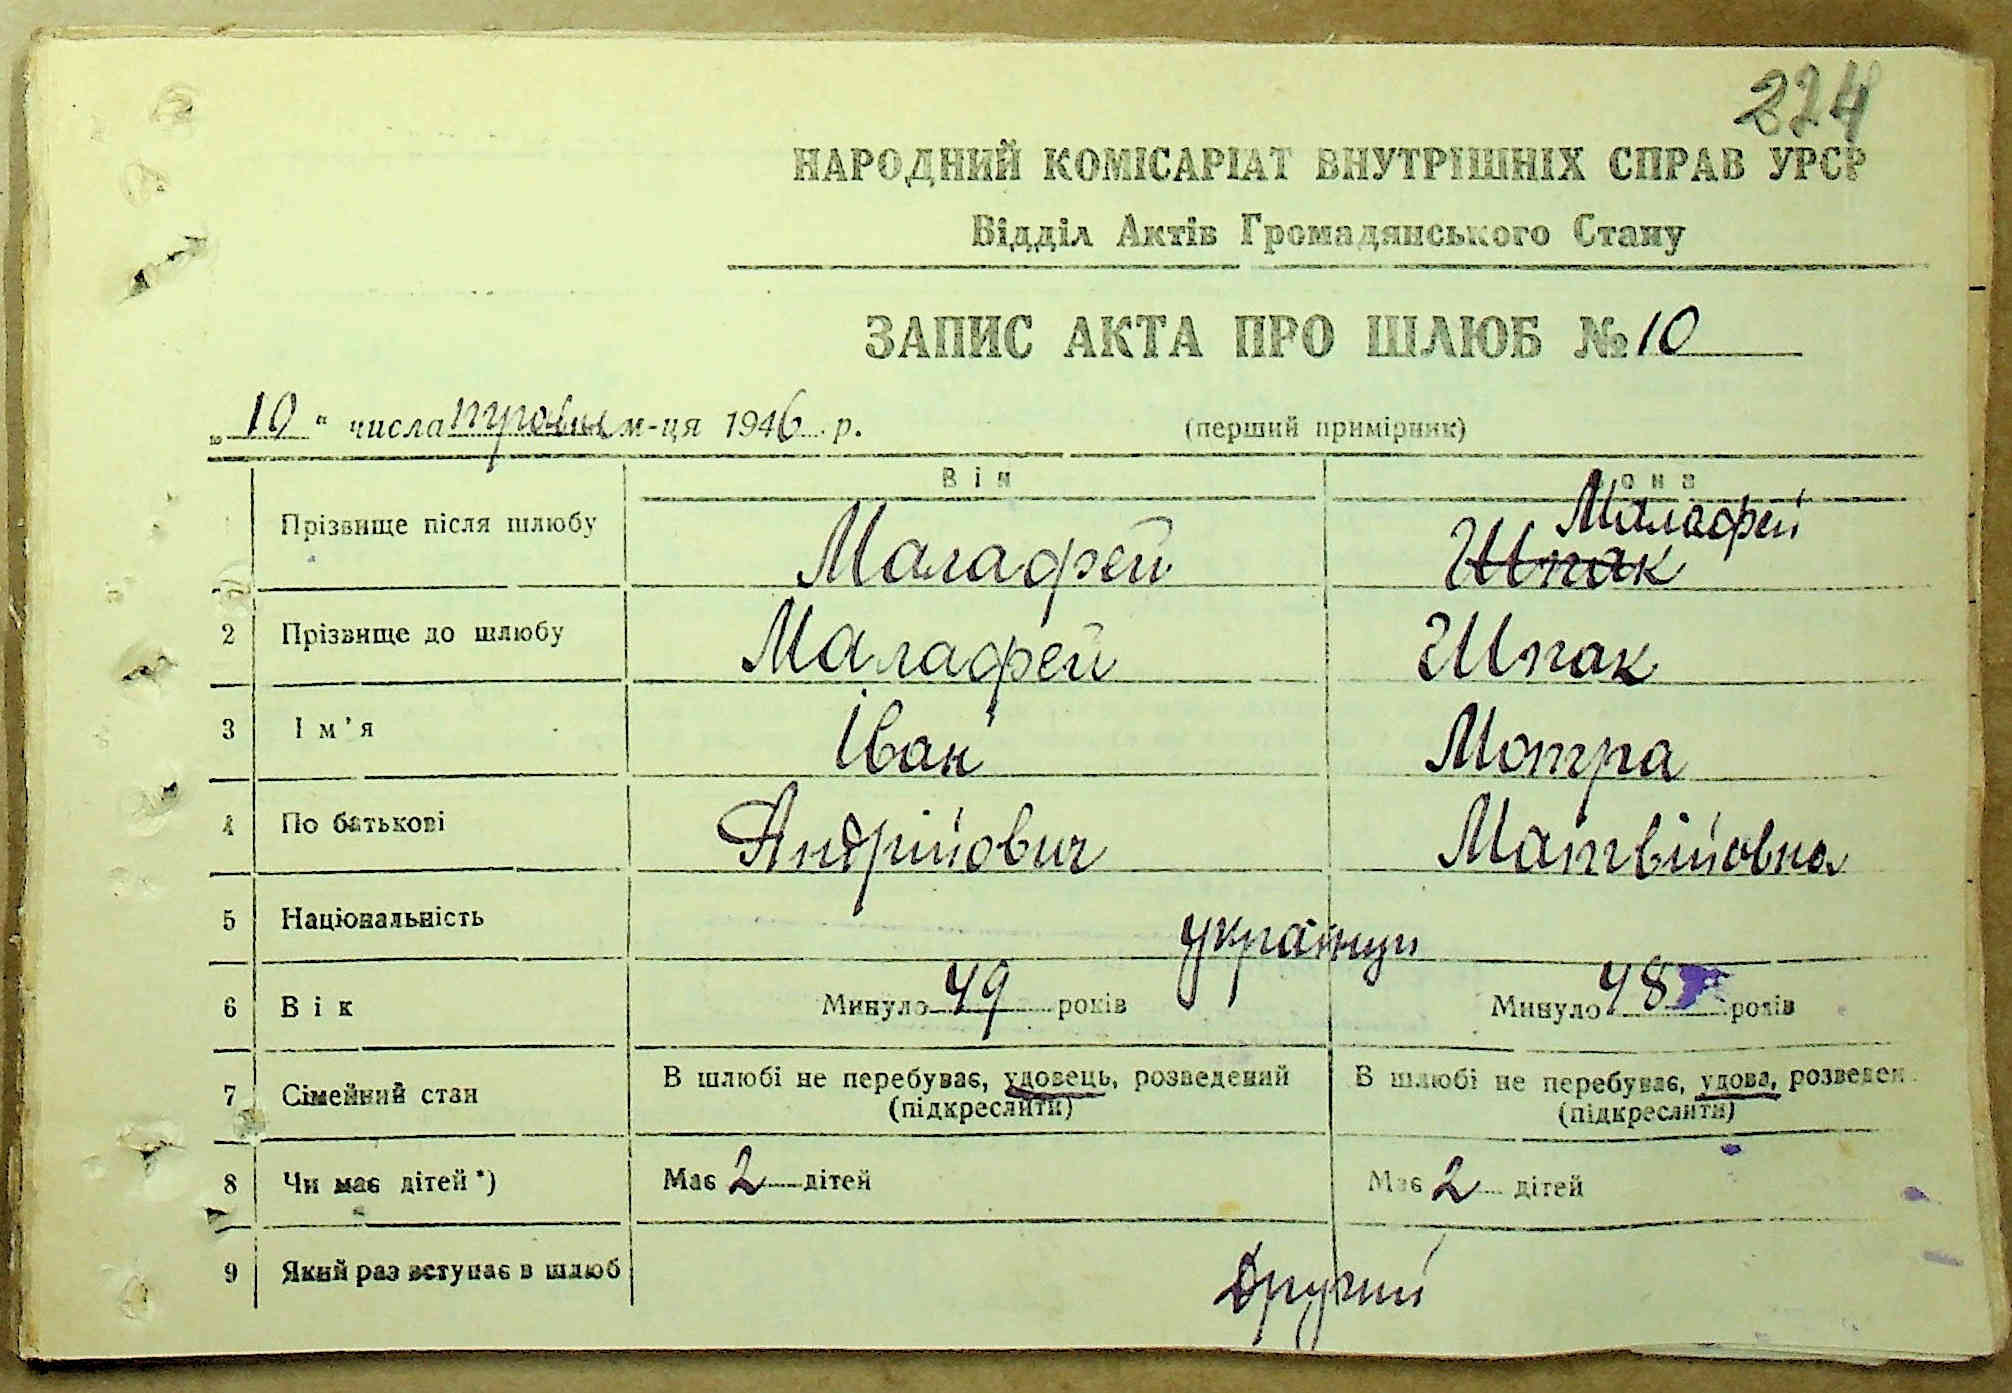 224
НАРОДНИЙ КОМІСАРІАТ ВНУТРІШНІХ СПРАВ УРСР
Відділ Актів Громадянського Стану
ЗАПИС АКТА ПРО ШЛЮБ № 10
„10" числа травня м-ця 1946 р. (перший примірник)
Він Вона
Малафей
Прізвище після шлюбу Малафей Шпак
2 Прізвище до шлюбу Малафей Шпак
3 Ім'я Іван Мотра
4 По батькові Андрійович Матвійовна
5 Національність українци
6 Вік Минуло 49 років Минуло 48 років
7 Сімейний стан В шлюбі не перебуває, удовець, розведений В шлюбі не перебуває, удова, розведен
(підкреслити) (підкреслити)
8 Чи має дітей*) Має 2 дітей Має 2 дітей
9 Який раз вступає в шлюб Другий